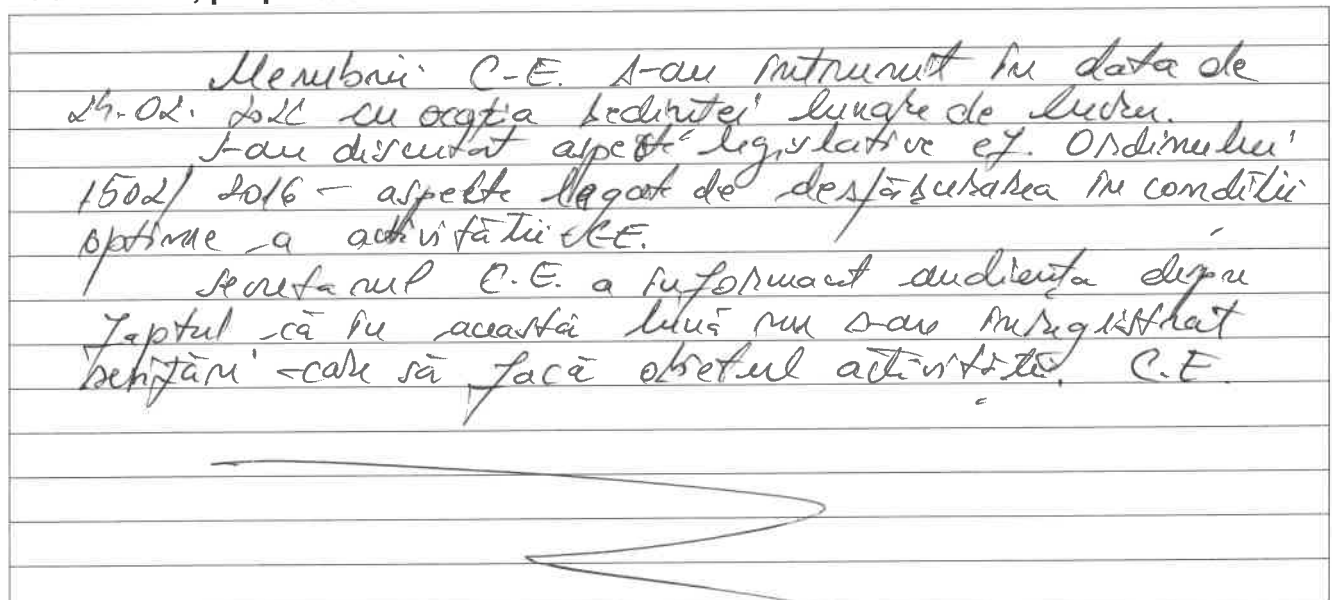 Membrii C.E. s-au întrunit în data de
24.02. cu ocazia ședinței lunare de lucru.
S-au discutat aspecte legislative cf. Ordinului
1502/2016 – aspecte legate de desfășurarea în condiții
optime a activității C.E.
Secretarul C.E. a informat audiența despre
faptul că în această lună nu s-au înregistrat
care să facă obiectul activității C.E.